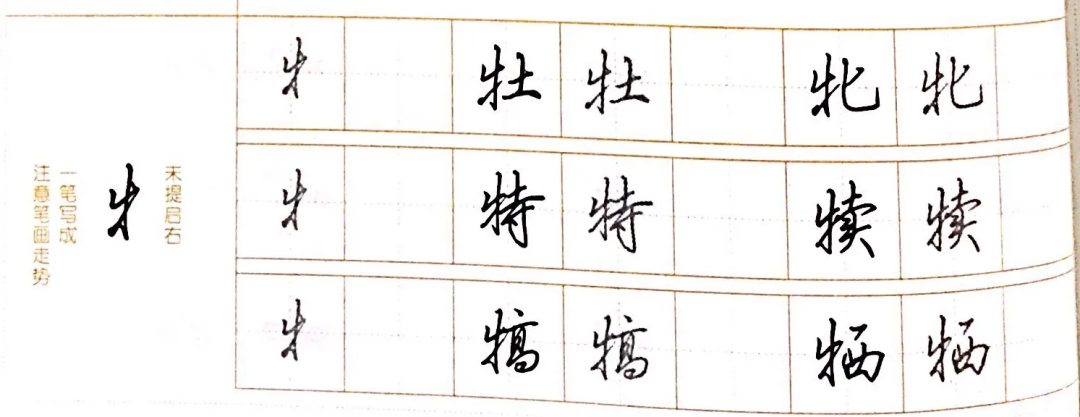 末提启右
一笔写成
注意笔画走势
牜
牜 牡 牡 牝 牝
牜 特 特 犊 犊
牜 犒 犒 牺 牺